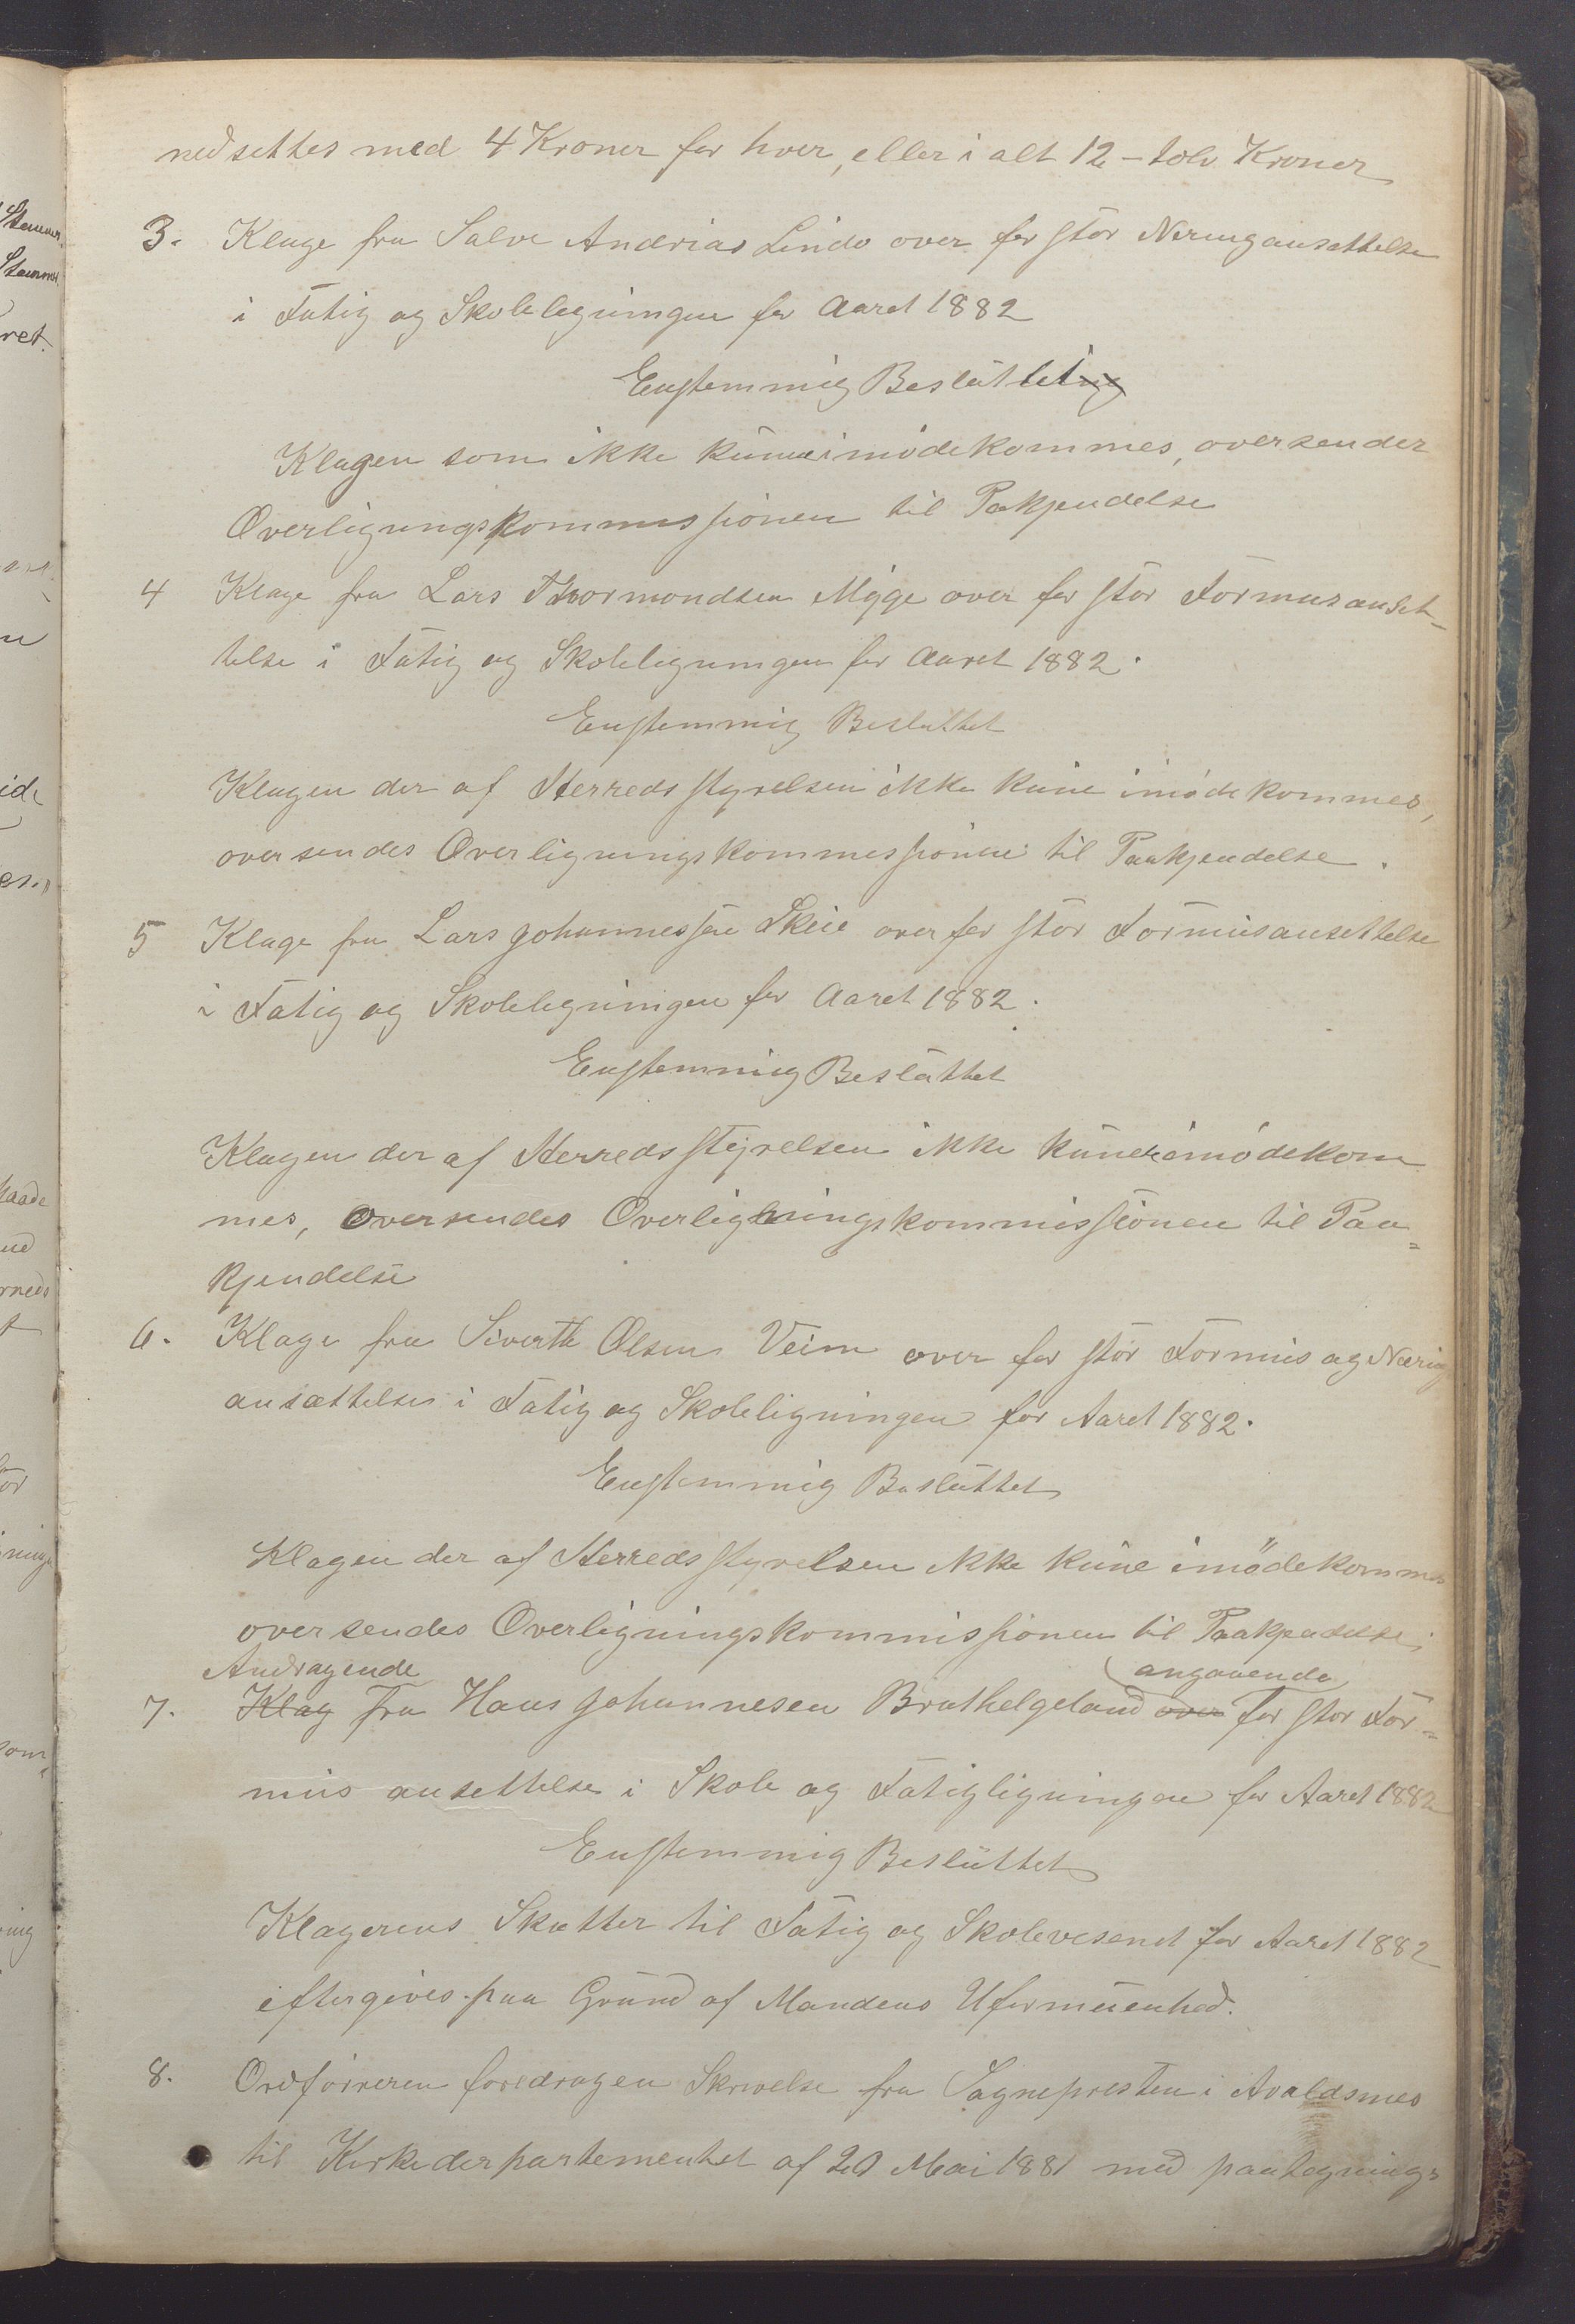 nedsettes med 4 Kroner for hver, eller i alt 12 - tolv Kroner
3. Klage fra Salve Andrias Lindø over for stor Neringansettelse
i Fatig og Skoleligningen for Aaret 1882
Enstemmig Besluttet
Klagen som ikke kunne imødekommes, oversender
Overligningskommissionen til Pakjendelse
4 Klage fra Lars Thormondsen Myge over for stor Formuesanset-
telse i Fatig og Skoleligningen for Aaret 1882.
Enstemmig Besluttet
Klagen der af Herredsstyrelsen ikke kune imødekommes,
oversendes Overligningskommessionen til Paakjendelse.
5 Klage fra Lars Johannessen Skeie over for stor Formusansettelse
i Fatig og Skoleligningen for Aaret 1882.
Enstemmig Besluttet
Klagen der af Herredsstyrelsen ikke kune imødekom
mes, oversendes Overligningskommissionen til Paa=
kjendelse
6. Klage fra Siverth Olsen Veim over for stor Formus og Nærig
ansættelse i Fatig og Skoleligningen for Aaret 1882.
Enstemmig Besluttet
Klagen der af Herredsstyrelsen ikke kune imødekommes
oversendes Overligningskommissionen til Paakjendelse.
Andragende angaaende
7. Klag fra Hans Johannesen Brathelgeland over for stor For=
mus ansettelse i Skole og Fatigligningen for Aaret 1882
Enstemmig Besluttet
Klagerens Skatter til Fatig og Skolevesenet for Aaret 1882
eftergives paa Grund af Mandens Uformuenhed.
8. Ordførreren foredragen Skrivelse fra Sognepresten i Avaldsnes
til Kirkederpartementet af 20 Mai 1881 med paategnings